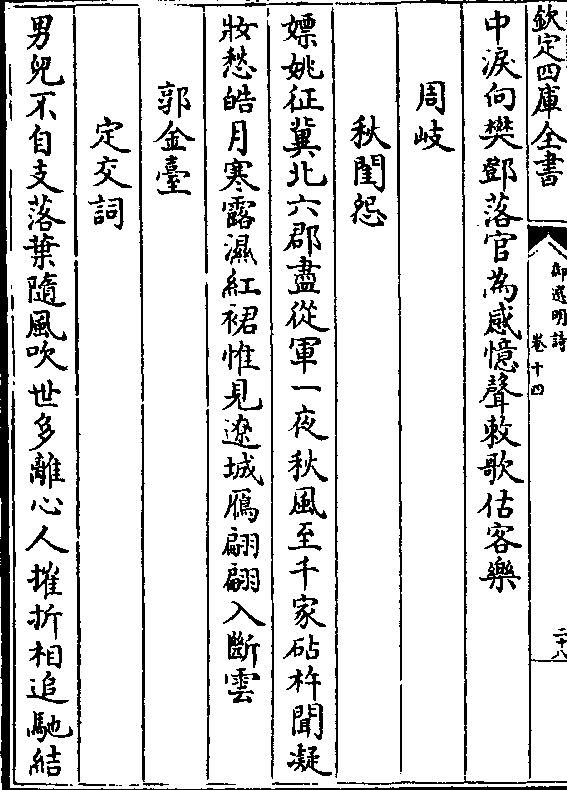 欽定四庫全書
御選明詩
卷十四
二十八
中淚向樊鄧落官為感憶聲敕歌估客樂
周岐
秋閨怨
嫖姚征冀北六郡盡從軍一夜秋風至千家砧杵聞凝
妝愁皓月寒露濕紅裙惟見遼城鴈翩翩入斷雲
郭金臺
定交詞
男兒不自支落葉隨風吹世多離心人摧折相追馳結